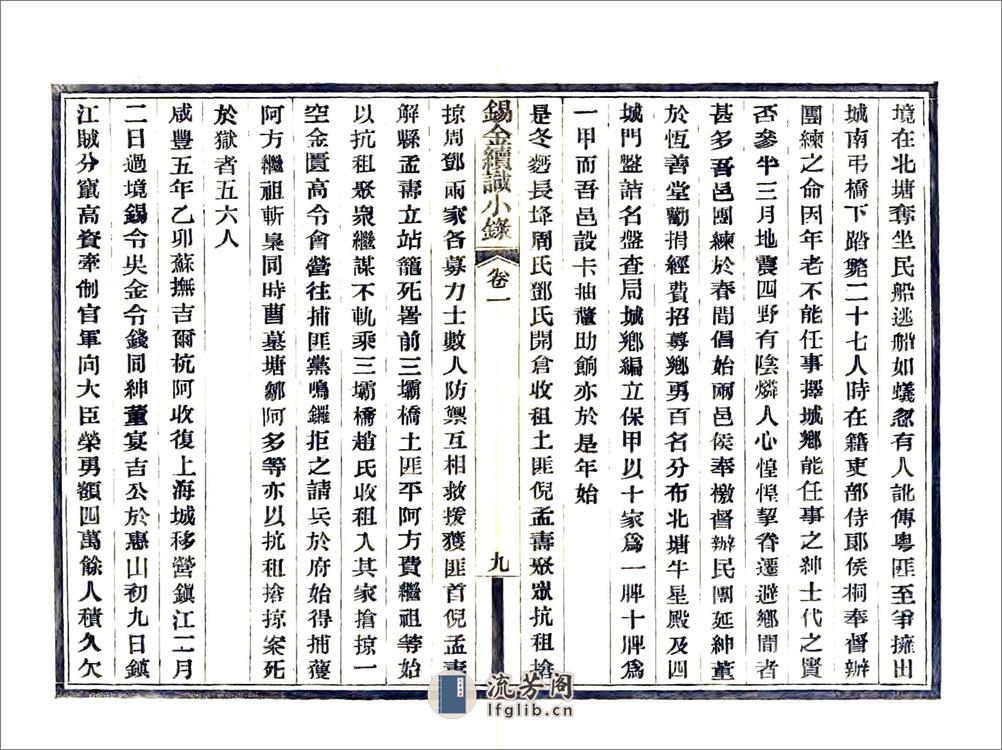 境在北塘奪坐民船逃船如蟻忽有人訛傳粵匪至爭擁出
城南弔橋下踏斃二十七人時在籍吏部侍郎侯桐奉督辦
團練之命因年老不能任事擇城鄉能任事之紳士代之賢
否參半三月地震四野有陰燐人心惶惶挈眷遷避鄉間者
甚多吾邑團練於春間倡始兩邑侯奉檄督辦民團延紳董
於恆善堂勸捐經費招募鄉勇百名分布北塘牛星殿及四
城門盤詰名盤查局城鄉編立保甲以十家爲一牌十牌爲
一甲而吾邑設卡抽釐助餉亦於是年始
是冬嵆長垾周氏鄧氏開倉收租土匪倪孟壽聚眾抗租搶
錫金續識小錄
卷一
九
掠周鄧兩家各募力士數人防禦互相救援獲匪首倪孟壽
解縣孟壽立站籠死署前三壩橋土匪平阿方費繼祖等始
以抗租聚眾繼謀不軌乘三壩橋趙氏收租入其家搶掠一
空金匱高令會營往捕匪黨鳴鑼拒之請兵於府始得捕獲
阿方繼祖斬梟同時曹墓塘鄒阿多等亦以抗租搶掠案死
於獄者五六人
咸豐五年乙卯蘇撫吉爾杭阿收復上海城移營鎮江二月
二日過境錫令吳金令錢同紳董宴吉公於惠山初九日鎮
江賊分竄高資牽制官軍向大臣榮勇額四萬餘人積久欠
流芳阁
lfglib.cn